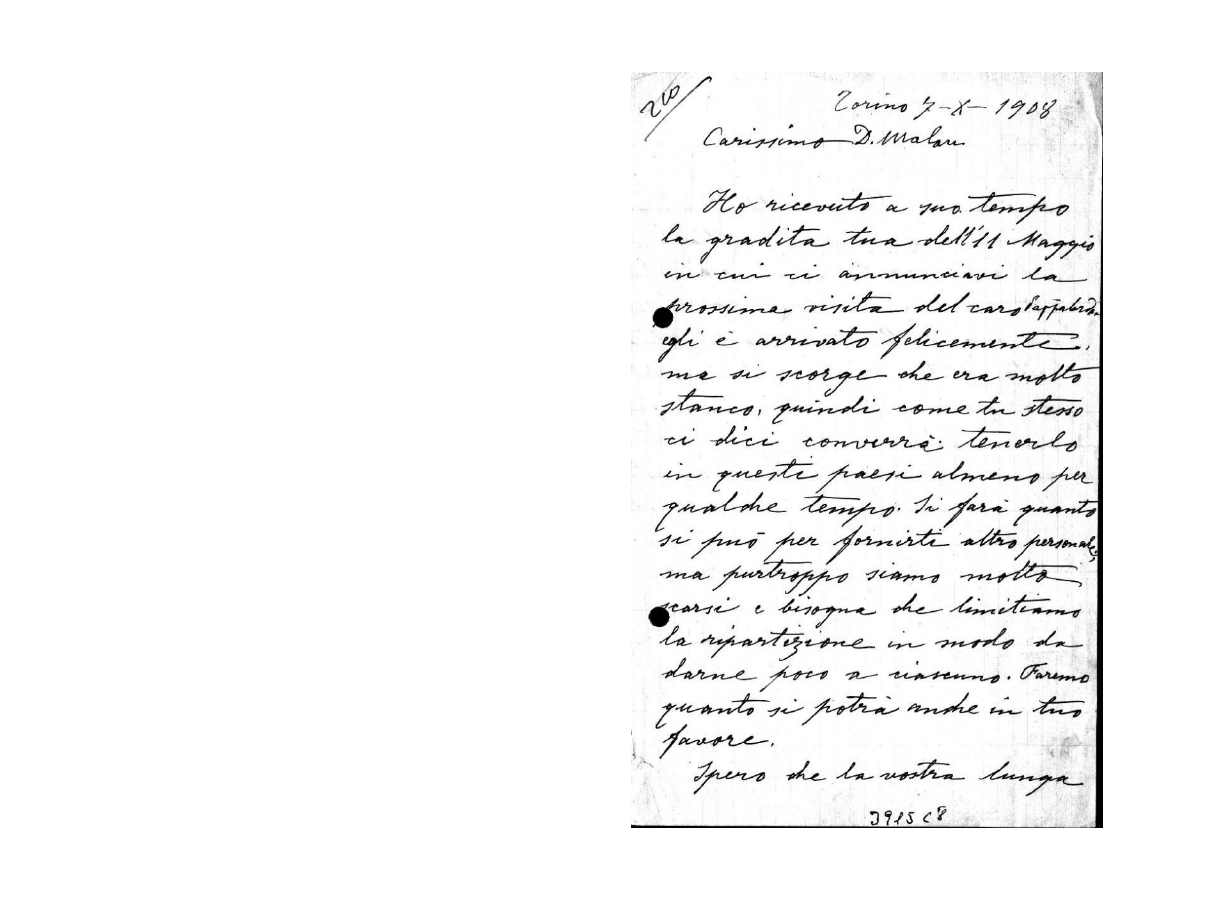 210
Torino 7-X-1908
Carissimo D. Malan
Ho ricevuto a suo tempo
la gradita tua dell'11 Maggio
in cui ci annunciavi la
prossima visita del caro
egli è arrivato felicemente,
ma si scorge che era molto
stanco, quindi come tu stesso
ci dici converrà tenerlo
in questi paesi almeno per
qualche tempo. Si farà quanto
si può per fornirti altro personale,
ma purtroppo siamo molto
scarsi e bisogna che limitiamo
la ripartizione in modo da
darne poco a ciascuno. Faremo
quanto si potrà anche in tuo
favore.
Spero che la vostra lunga
3915 C8